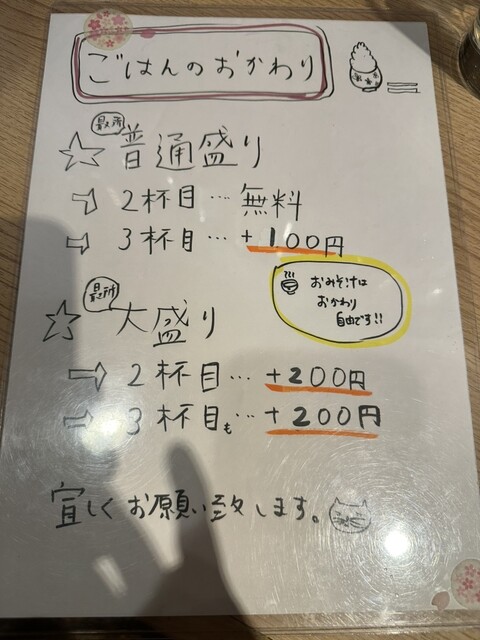 ごはんのおかわり
最初
☆ 普通盛り
⇨ 2杯目… 無料
⇨ 3杯目… +100円
おみそ汁は
おかわり
自由です!!
最初
☆ 大盛り
⇨ 2杯目… +200円
⇨ 3杯目も… +200円
宜しくお願い致します。